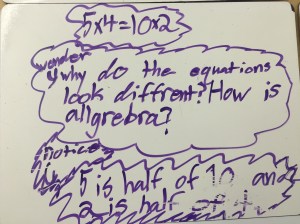 5x4=10x2
wonder
why do the equations
look diffrent? How is
allgrebra?
notice
5 is half of 10 and
2 is half of 4.